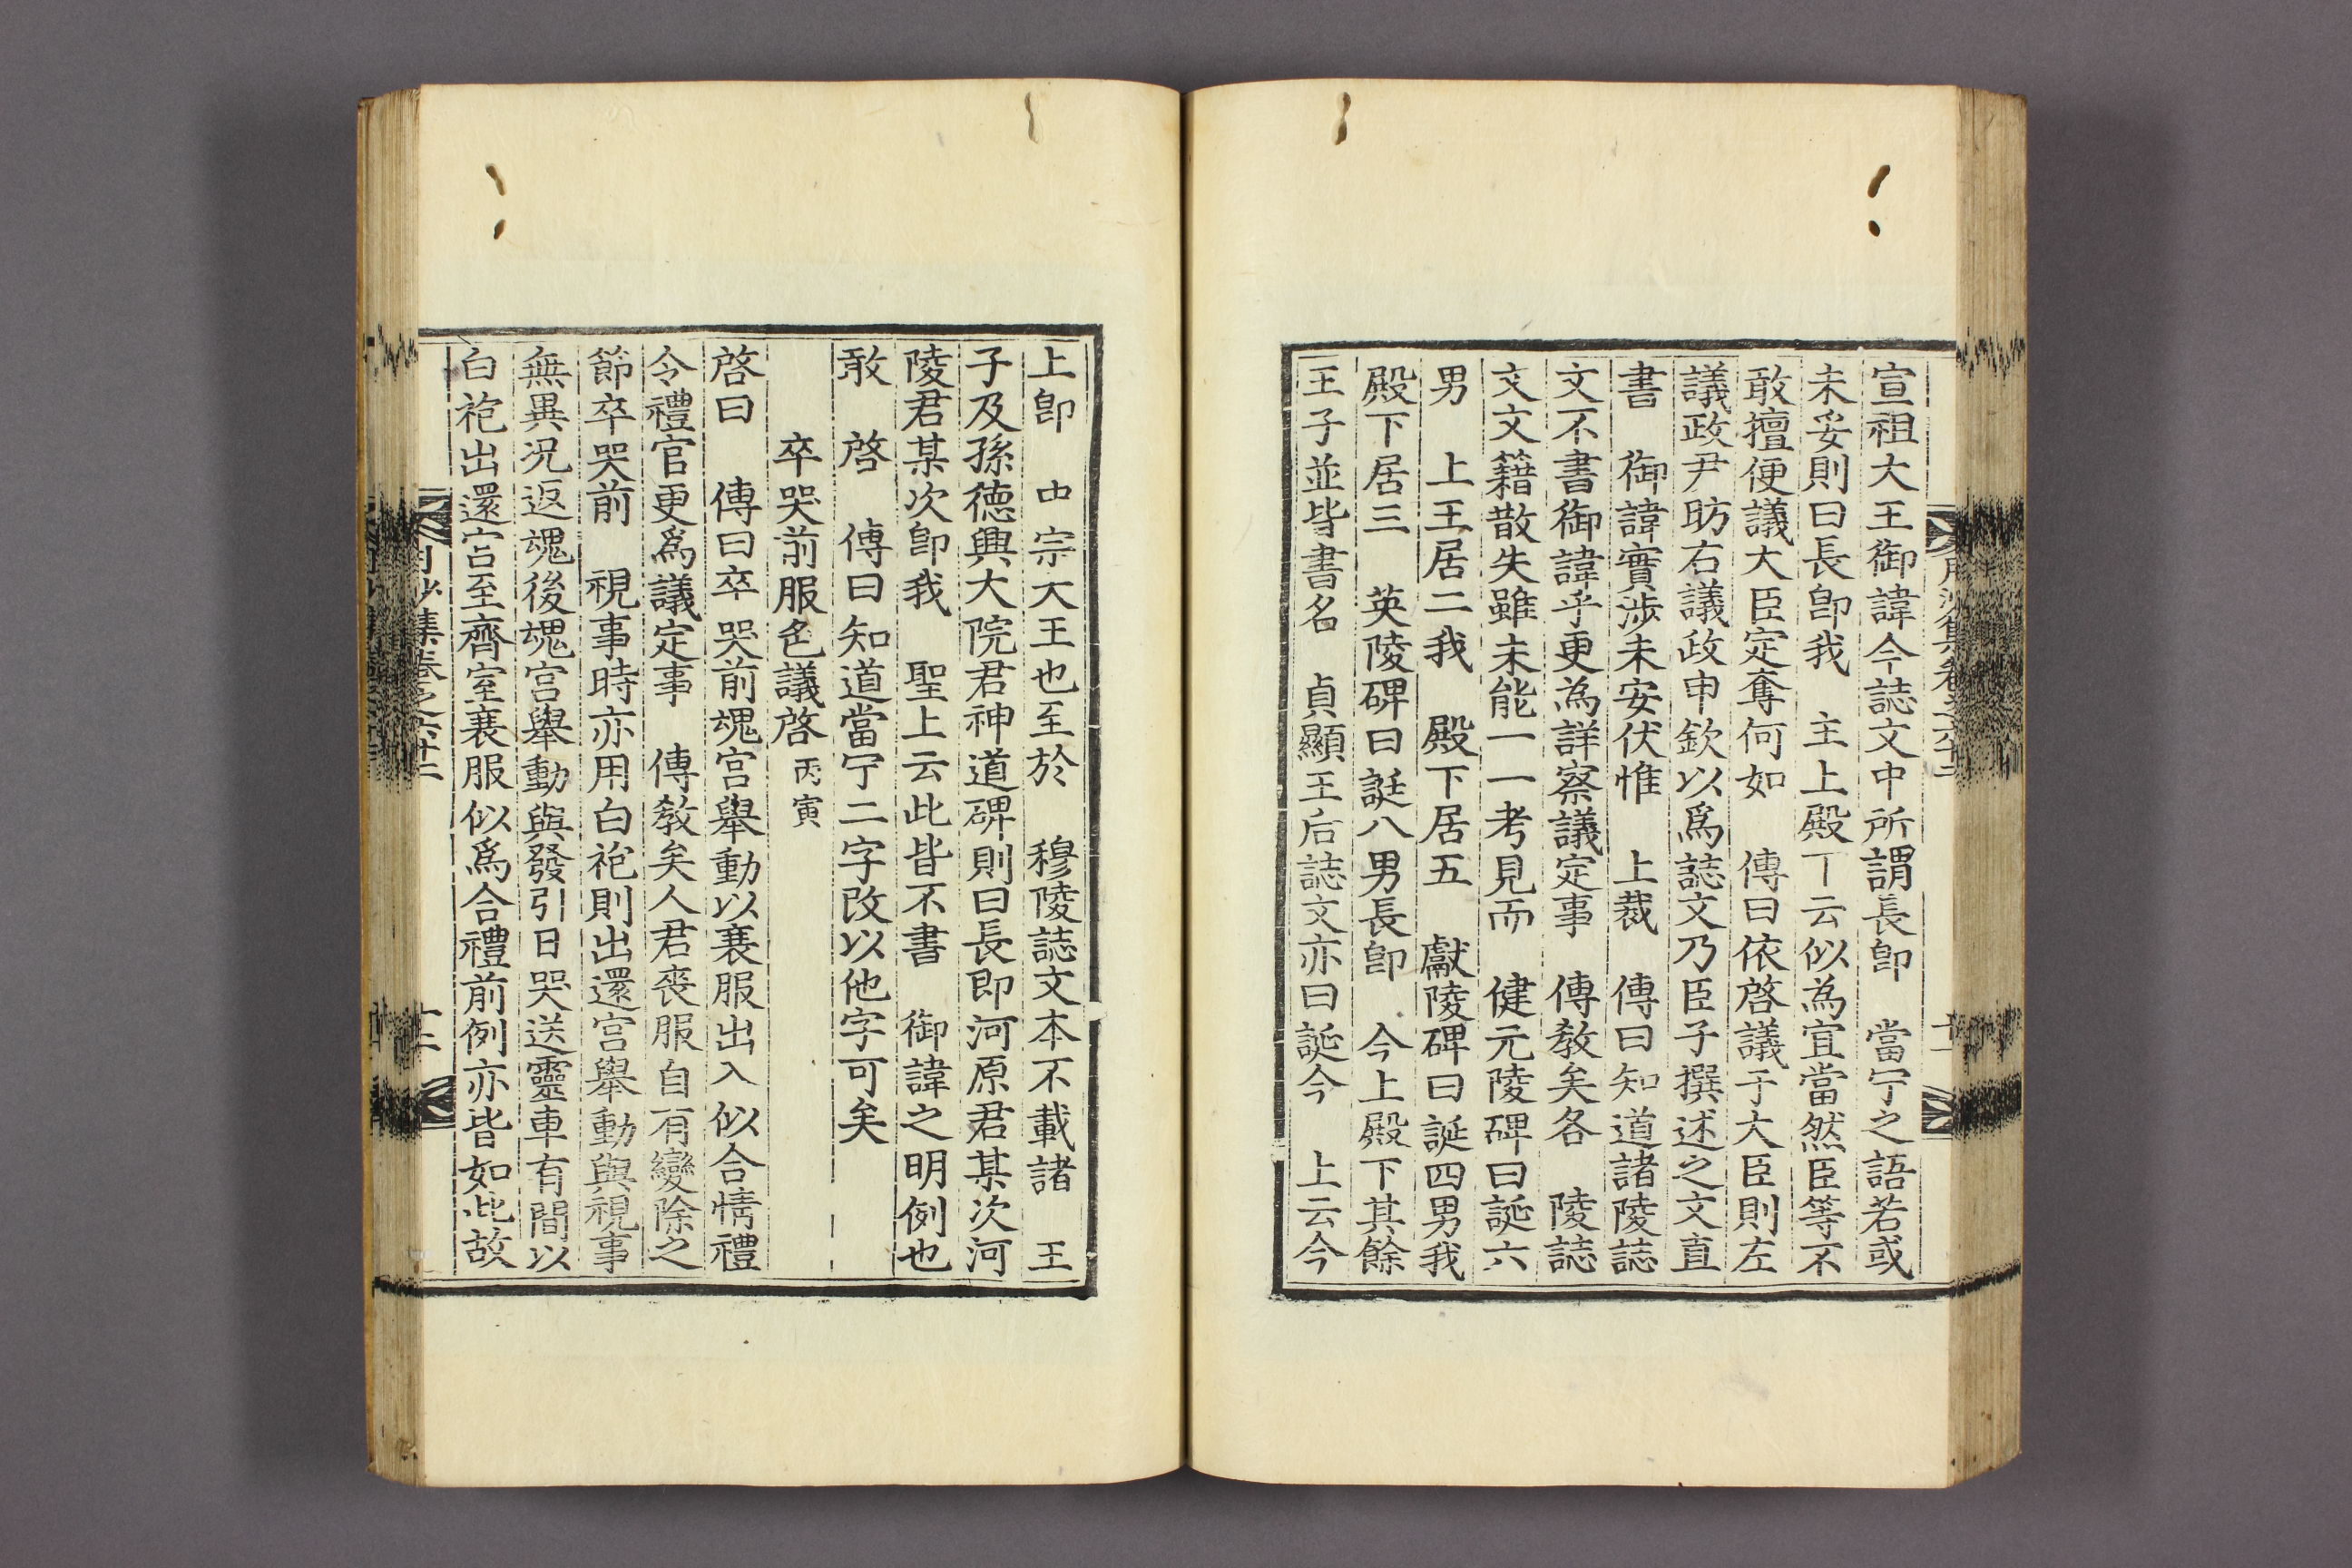 宣祖大王御諱今誌文中所謂長卽　當宁之語若或
未妥則曰長卽我　主上殿丅云似為宜當然臣等不
敢擅便議大臣定奪何如　傳曰依啓議于大臣則左
議政尹昉右議政申欽以爲誌文乃臣子撰述之文直
書　御諱實涉未安伏惟　上裁　傳曰知道諸陵誌
文不書御諱乎更為詳察議定事　傳敎矣各　陵誌
文文籍散失雖未能一一考見而　健元陵碑曰誕六
男　上王居二我　殿下居五　獻陵碑曰誕四男我
殿下居三　英陵碑曰誕八男長卽　今上殿下其餘
王子並皆書名　貞顯王后誌文亦曰誕今　上云今
上卽　中宗大王也至於　穆陵誌文本不載諸　王
子及孫德興大院君神道碑則曰長卽河原君某次河
陵君某次卽我　聖上云此皆不書　御諱之明例也
敢　啓　傳曰知道當宁二字改以他字可矣
卒哭前服色議啓 丙寅
啓曰　傳曰卒哭前魂宮舉動以衰服出入似合情禮
令禮官更爲議定事　傳敎矣人君喪服自有變除之
節卒哭前　視事時亦用白袍則出還宮舉動與視事
無異况返魂後魂宮舉動與發引日哭送靈車有間以
白袍出還宮至齊室衰服似爲合禮前例亦皆如此故
月沙集卷之六十二
十二